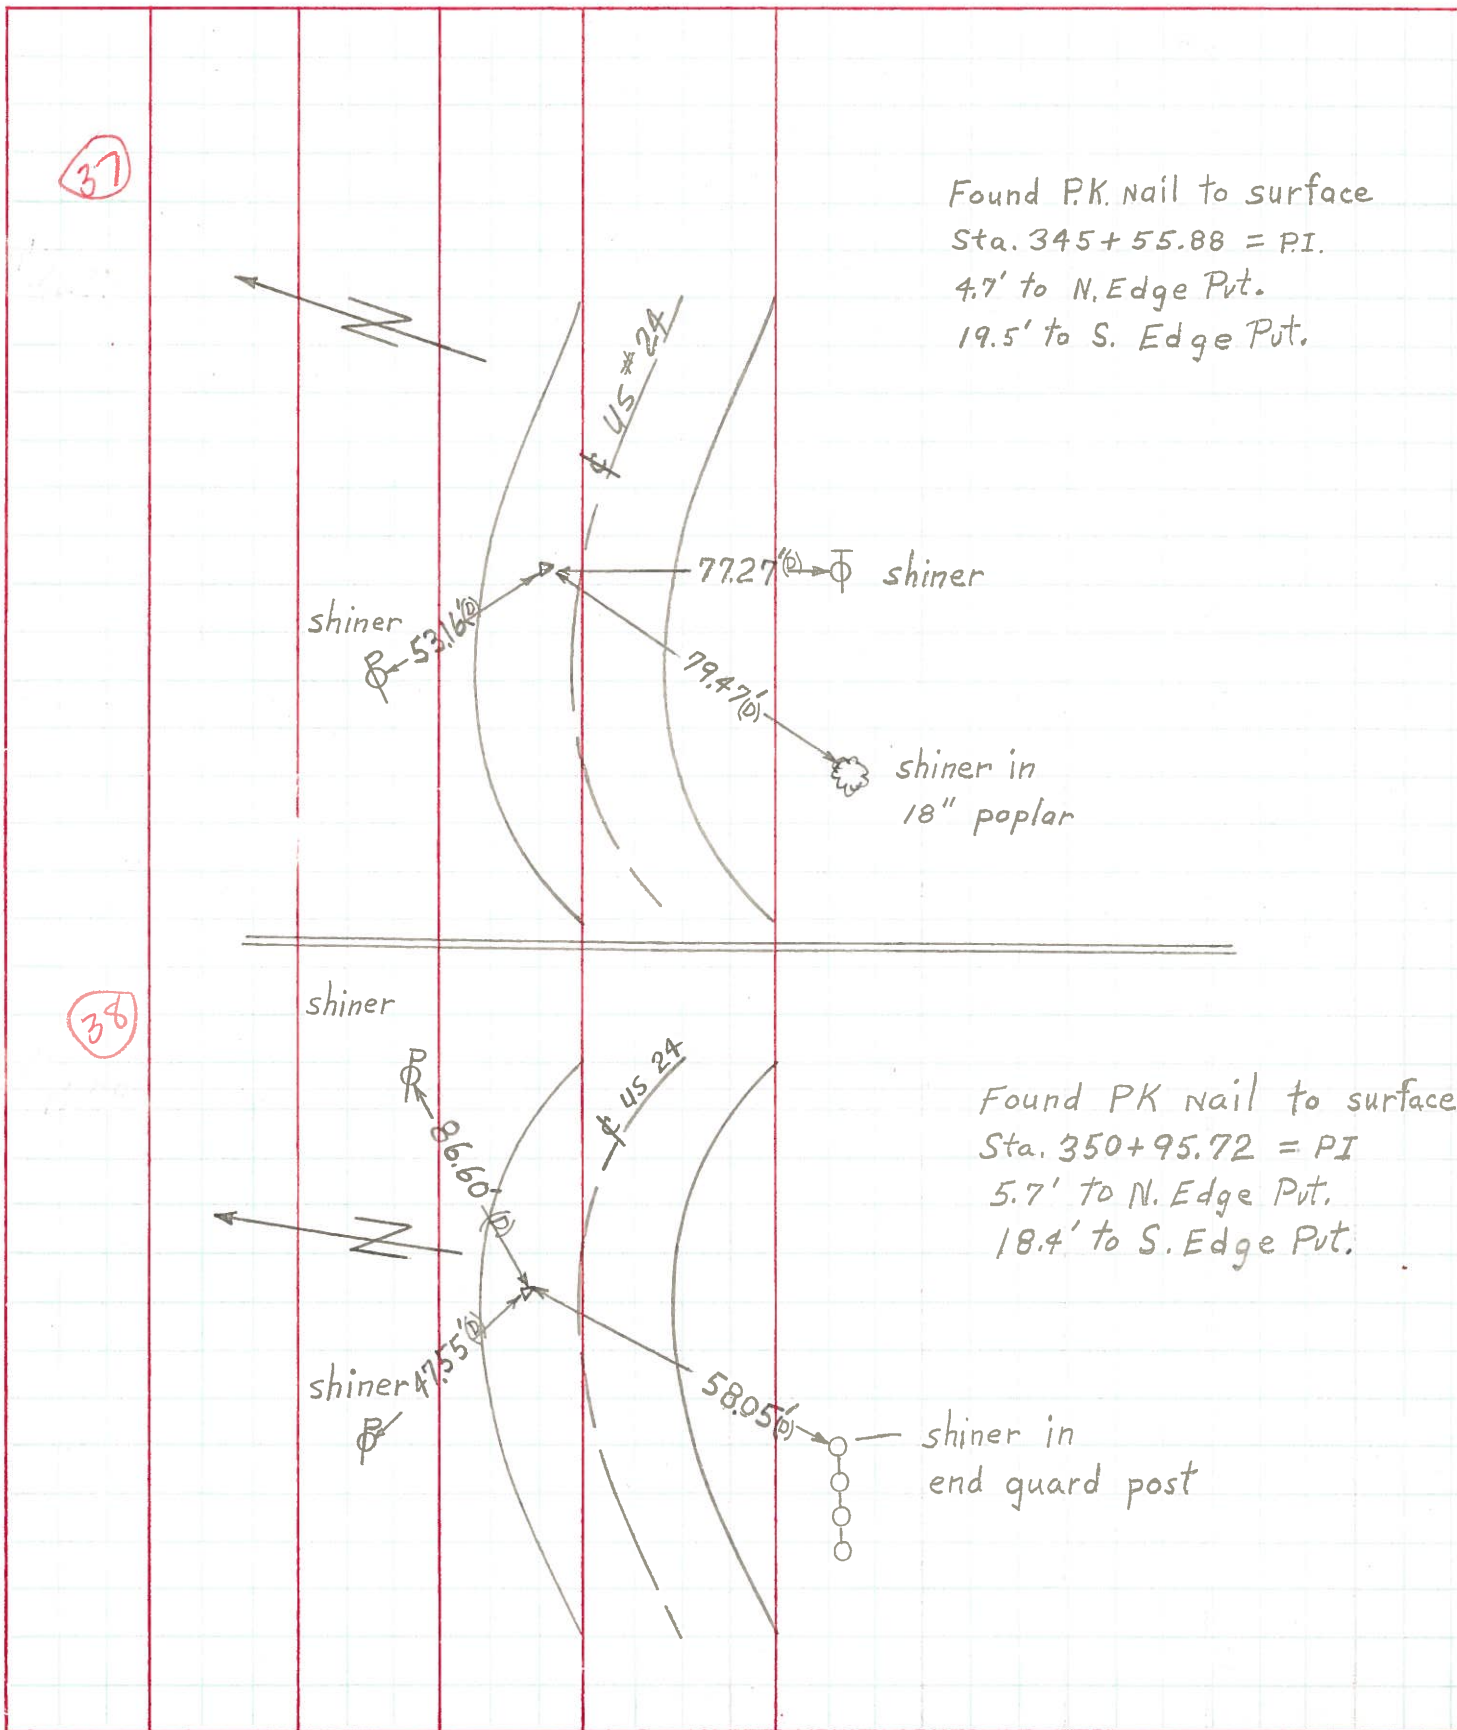 37
Found P.K. Nail to surface
Sta. 345+55.88 = P.I.
4.7' to N. Edge Pvt.
19.5' to S. Edge Pvt.
℄ US #24
77.27'(D)
shiner
shiner
53.16'(D)
79.47'(D)
shiner in
18" poplar
38
shiner
℄ US 24
Found PK Nail to surface
Sta. 350+95.72 = PI
5.7' to N. Edge Pvt.
18.4' to S. Edge Pvt.
86.60'(D)
shiner
47.55'(D)
58.05'(D)
shiner in
end guard post